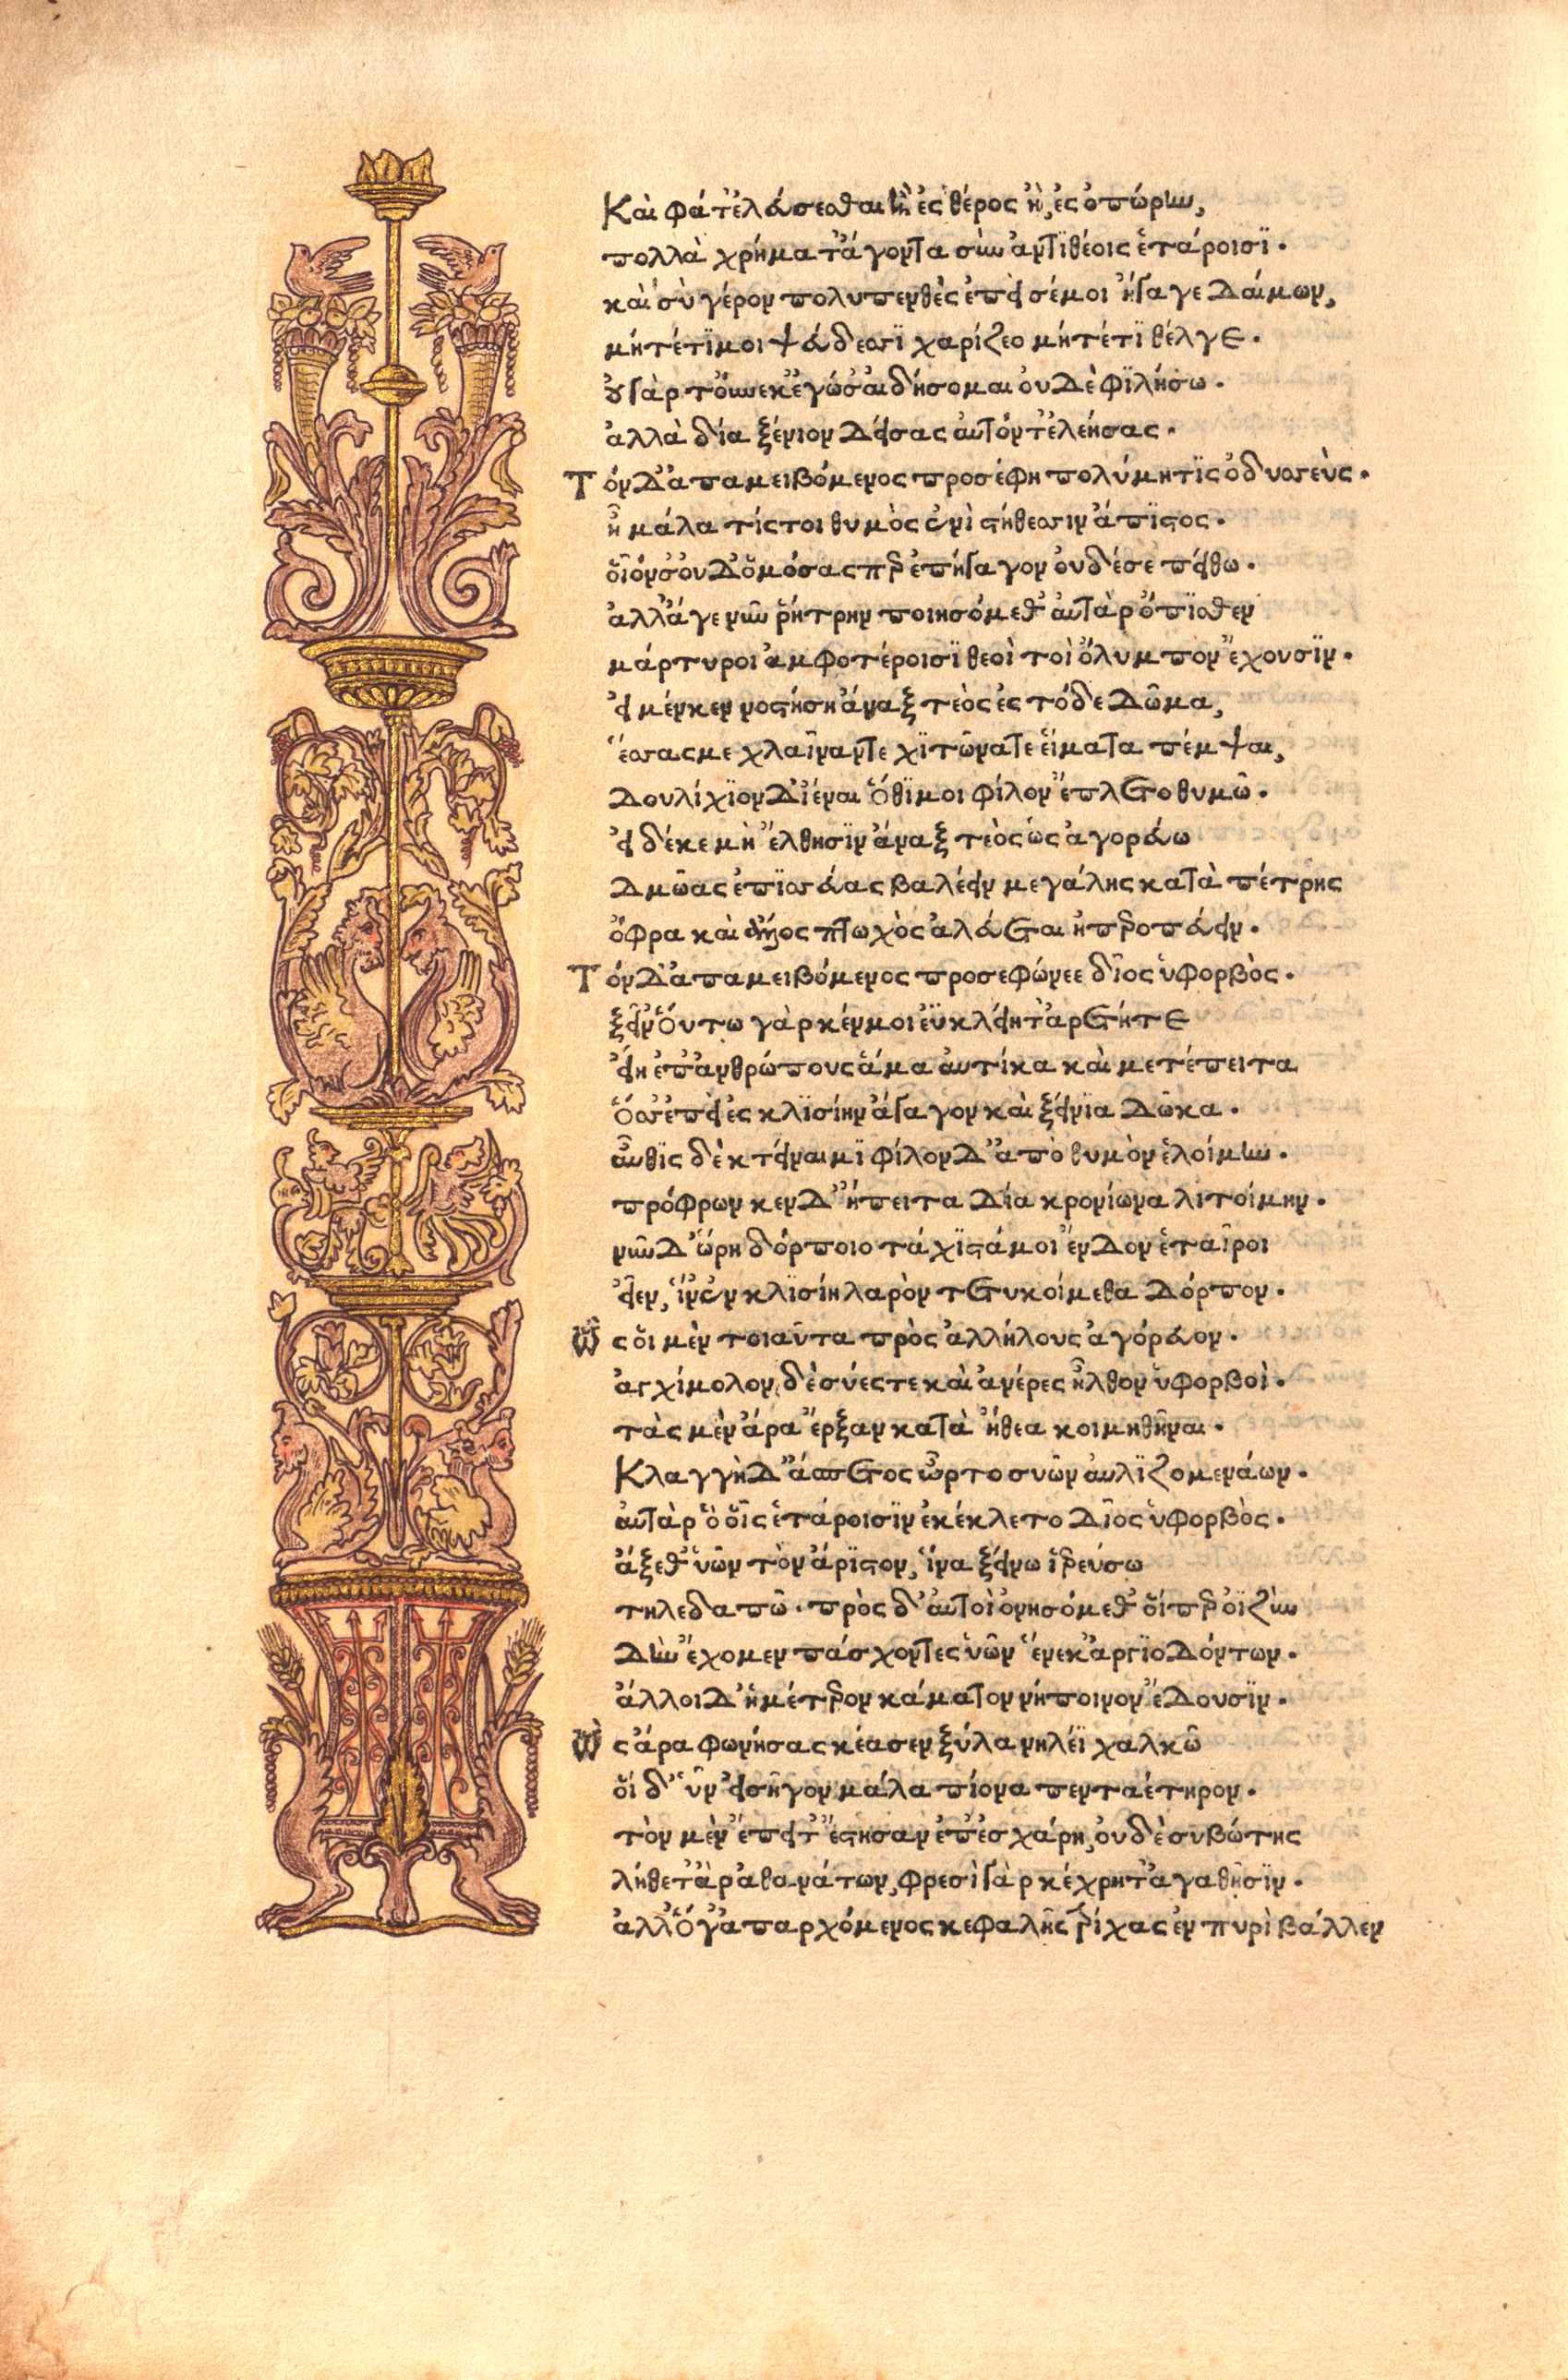 Καὶ φάτ' ἐλεύσεσθαι ἢ ἐς θέρος ἢ, ἐς ὀπώρην,
πολλὰ χρήματ' ἄγοντα σὺν ἀντιθέοις ἑτάροισϊ.
καὶ σὺ γέρον πολυπενθὲς ἐπεί σέ μοι ἤγαγε Δαίμων,
μήτέ τϊ μοι ψεύδεσσϊ χαρίζεο μήτέ τϊ θέλγε.
οὐ γὰρ τοὔνεκ' ἐγώ σ' αἰδήσομαι οὐΔὲ φϊλήσω.
ἀλλὰ δία ξένιον Δείσας αὐτόν τ' ἐλεήσας.
Τόν Δ' ἀπαμειβόμενος προσέφη πολύμητϊς ὀδυσσεὺς.
ἦ μάλα τίς τοι θυμὸς ἐνὶ στήθεσσιν ἄπϊστος.
οἷόν σ' οὐΔ' ὀμόσας περ ἐπήγαγον οὐδέ σε πείθω.
ἀλλ' ἄγε νῦν ῥήτρην ποιησόμεθ' αὐτὰρ ὄπϊσθεν
μάρτυροι ἀμφοτέροισϊ θεοὶ τοὶ ὄλυμπον ἔχουσϊν.
εἰ μέν κεν νοστήσῃ ἄναξ τεὸς ἐς τόδε Δῶμα,
ἕσσας με χλαῖναν τε χϊτῶνα τε εἵματα πέμψαι,
Δουλίχϊον Δ' ἰέναι ὅθϊ μοι φίλον ἔπλετο θυμῶ.
εἰ δέ κε μὴ ἔλθησϊν ἄναξ τεὸς ὡς ἀγορεύω
Δμῶας ἐπϊσσεύας βαλέειν μεγάλης κατὰ πέτρης
ὄφρα καὶ ἄλλος πτωχὸς ἀλεύεται ἠπεροπεύειν.
Τόν Δ' ἀπαμειβόμενος προσεφώνεε δῖος ὑφορβὸς.
ξεῖν' οὕτω γὰρ κέν μοι ἐϋκλείη τ' ἀρετή τε
εἴη ἐπ' ἀνθρώπους ἅμα αὐτίκα καὶ μετέπειτα
ὅς σ' ἐπεὶ ἐς κλϊσίην ἄγαγον καὶ ξείνϊα Δῶκα.
αὖθϊς δὲ κτείναιμϊ φίλον Δ' ἀπὸ θυμὸν ἑλοίμην.
πρόφρων κεν Δ' ἤπειτα Δία κρονίωνα λιτοίμην.
νῦν Δ' ὥρη δόρποιο τάχϊστά μοι ἔνΔον ἑταῖροι
εἶεν, ἵν' ἐν κλϊσίη λαρὸν τετυκοίμεθα Δόρπον.
Ὣς οἱ μὲν τοιαῦτα πρὸς ἀλλήλους ἀγόρευον.
ἀγχίμολον, δὲ σύες τε καὶ ἀνέρες ἦλθον ὑφορβοὶ.
τὰς μὲν ἄρα ἔρξαν κατὰ ἤθεα κοιμηθῆναι.
Κλαγγὴ Δ' ἄσπετος ὦρτο συῶν αὐλϊζομενάων.
αὐτὰρ ὁ οἷς ἑτάροισϊν ἐκέκλετο Δῖος ὑφορβὸς.
ἄξεθ' ὑῶν τὸν ἄρϊστον, ἵνα ξείνω ἱερεύσω
τηλεδαπῶ. πρὸς δ' αὐτοὶ ὀνησόμεθ' οἵ περ ὀϊζὺν
Δὴν ἔχομεν πάσχοντες ὑῶν ἕνεκ' ἀργϊοΔόντων.
ἄλλοι Δ' ἡμέτερον κάματον νήποινον ἔΔουσϊν.
Ὣς ἄρα φωνήσας κέασεν ξύλα νηλέϊ χαλκῶ
οἱ δ' ὗν εἰσῆγον μάλα πίονα πενταέτηρον.
τὸν μὲν ἔπειτ' ἔστησαν ἐπ' ἐσχάρη, οὐδὲ συβώτης
λήθετ' ἂρ ἀθανάτων, φρεσὶ γὰρ κέχρητ' ἀγαθῆσϊν.
ἀλλ' ὅ γ' ἀπαρχόμενος κεφαλῆς τρίχας ἐν πυρὶ βάλλεν